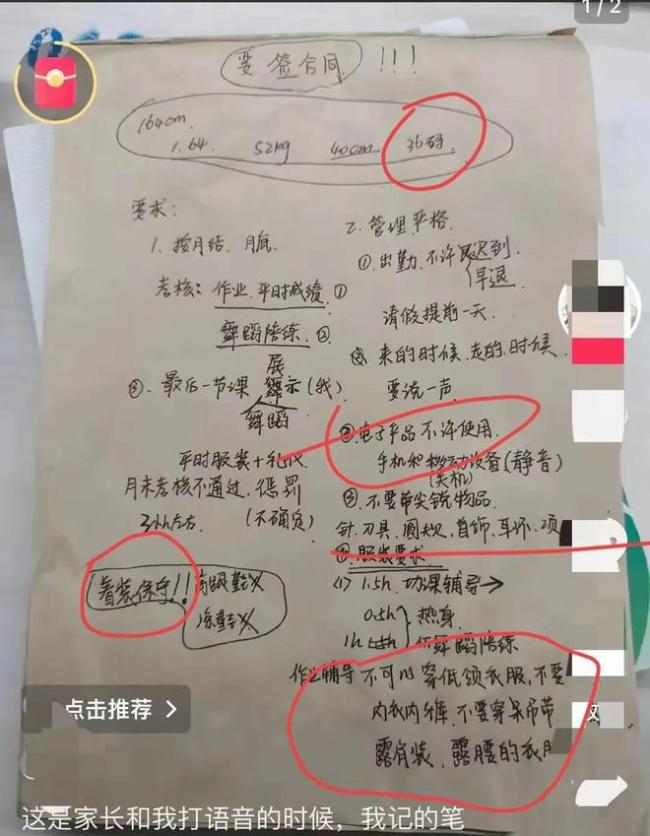 1/2
要签合同 !!!
164cm.
1.64. 52kg 40cm 36码
要求:
1. 按月结. 月底
考核: 作业. 平时成绩. ①
舞蹈陪练. ②
③. 最后一节课 舞示(我)
展
舞蹈
平时服装+礼仪
月末考核不通过, 惩罚
(不确定)
着装保守!!
2. 管理严格.
①. 出勤. 不许 迟到.
早退
请假提前一天.
来的时候. 走的时候.
要说一声
电子产品 不许使用.
手机 移动设备(静音)
(关机)
③. 不要带尖锐物品.
针. 刀具. 圆规. 首饰. 耳环. 项
④. 服装要求
(1) 1.5h. 功课辅导→
0.5h 热身.
1h 舞蹈陪练
作业辅导 不可以穿低领衣服, 不要
不要穿 吊带
露肩装. 露腰的衣
点击推荐 >
这是家长和我打语音的时候，我记的笔